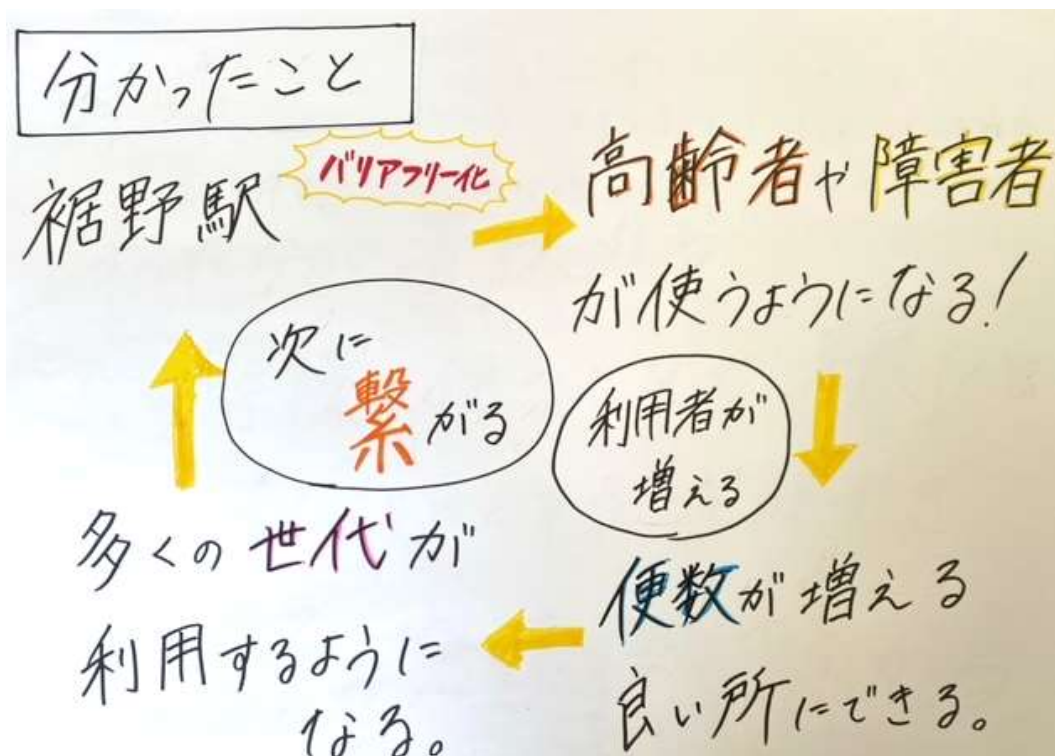 分かったこと
裾野駅
バリアフリー化
高齢者や障害者
が使うようになる!
利用者が
増える
便数が増える
良い所にできる。
多くの世代が
利用するように
なる。
次に
繋がる